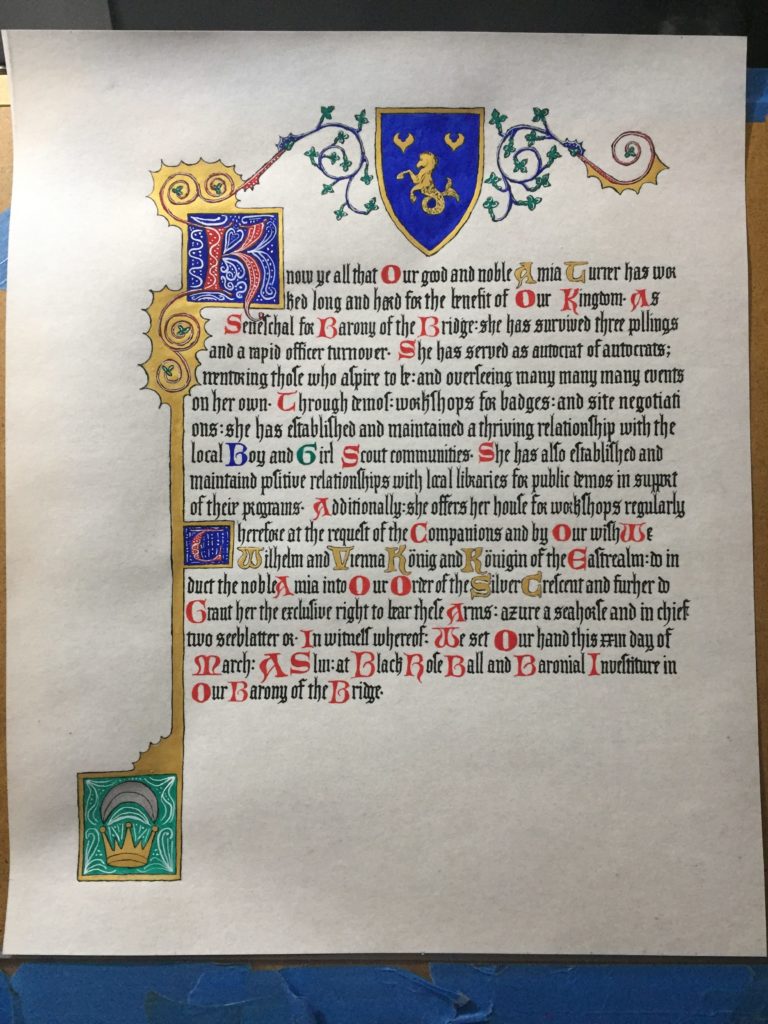 Know ye all that Our good and noble Amia Turrer has wor
ked long and hard for the benefit of Our Kingdom. As
Seneschal for Barony of the Bridge: she has survived three pollings
and a rapid officer turnover. She has served as autocrat of autocrats;
mentoring those who aspire to be: and overseeing many many many events
on her own. Through demos: workshops for badges: and site negotiati
ons: she has established and maintained a thriving relationship with the
local Boy and Girl Scout communities. She has also established and
maintaind positive relationships with local libraries for public demos in support
of their programs. Additionally: she offers her house for workshops regularly
Therefore at the request of the Companions and by Our wish We
Wilhelm and Vienna König and Königin of the Eastrealm: do in
duct the noble Amia into Our Order of the Silver Crescent and furher do
Grant her the exclusive right to bear these Arms: azure a seahorse and in chief
two seeblatter or. In witness whereof: We set Our hand this day of
March: A S liii: at Black Rose Ball and Baronial Investiture in
Our Barony of the Bridge.